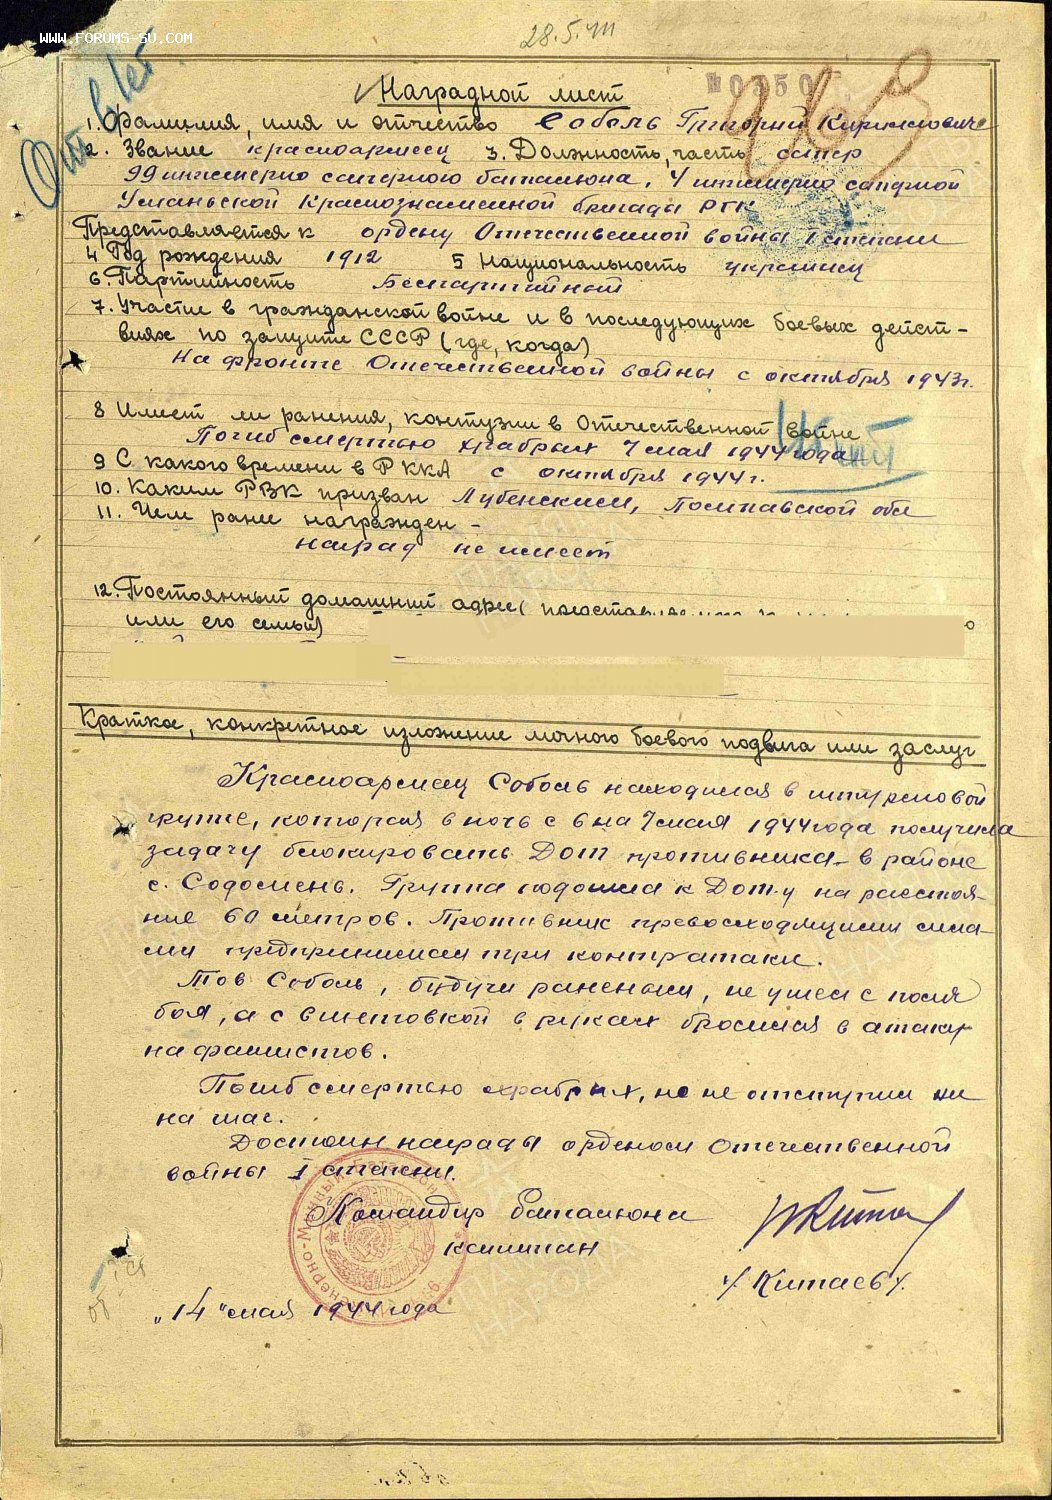 WWW.FORUMS-SU.COM
28.5.44
Наградной лист
1. Фамилия, имя и отчество Соболь Григорий Кириллович
2. Звание красноармеец 3. Должность, часть сапер
99 инженерно саперного батальона, 4 инженерно саперной
Уманьской Краснознаменной бригады РГК
Представляется к ордену Отечественной войны I степени
4 Год рождения 1912 5 Национальность украинец
6. Партийность Беспартийный
7. Участие в гражданской войне и в последующих боевых дейст-
виях по защите СССР (где, когда)
На фронте Отечественной войны с октября 1943г.
8 Имеет ли ранения, контузии в Отечественной войне
Погиб смертью храбрых 7 мая 1944 года
9 С какого времени в РККА с октября 1944 г.
10. Каким РВК призван Лубенским, Полтавской обл
11. Чем ранее награжден -
наград не имеет
12. Постоянный домашний адрес (представляемого
или его семьи)
Краткое, конкретное изложение личного боевого подвига или заслуг
Красноармеец Соболь находился в штурмовой
группе, которая в ночь с 6 на 7 мая 1944 года получила
задачу блокировать Дот противника в районе
с. Подошла к Дот-у на расстоя-
ние 60 метров. Противник превосходящими сила-
ми предпринимал три контратаки.
Тов Соболь, будучи раненым, не ушел с поля
боя, а с винтовкой в руках бросился в атаку
на фашистов.
Погиб смертью храбрых, но не отступил ни
на шаг.
Достоин награды орденом Отечественной
войны I степени.
Командир батальона
капитан
/Китаев/.
"14" мая 1944 года